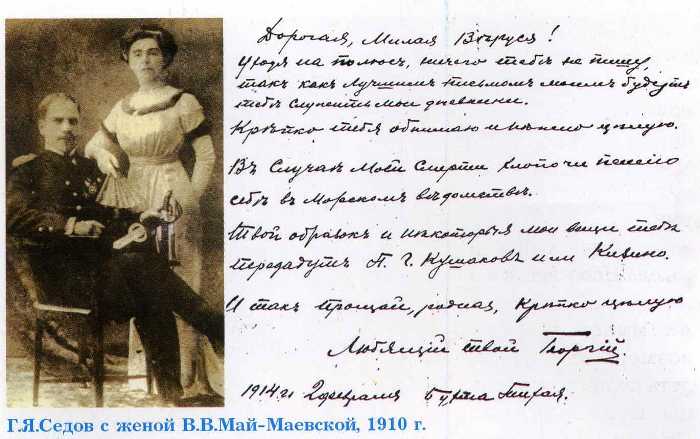 Дорогая, Милая Веруся!
Уходя на полюс, ничего тебѣ не пишу,
такъ какъ лучшимъ письмомъ моимъ будутъ
тебѣ служить мои дневники.
Крѣпко тебя обнимаю и нѣжно цѣлую.
Въ случаѣ моей смерти хлопочи пенсію
себѣ въ морскомъ вѣдомствѣ.
Твой образокъ и нѣкоторыя мои вещи тебѣ
передадутъ П. Г. Кушаковъ или Кизино.
И такъ прощай, родная, крѣпко цѣлую
Любящій твой Георгій.
1914 г. 2 февраля Бухта Тихая.
Г.Я.Седов с женой В.В.Май-Маевской, 1910 г.